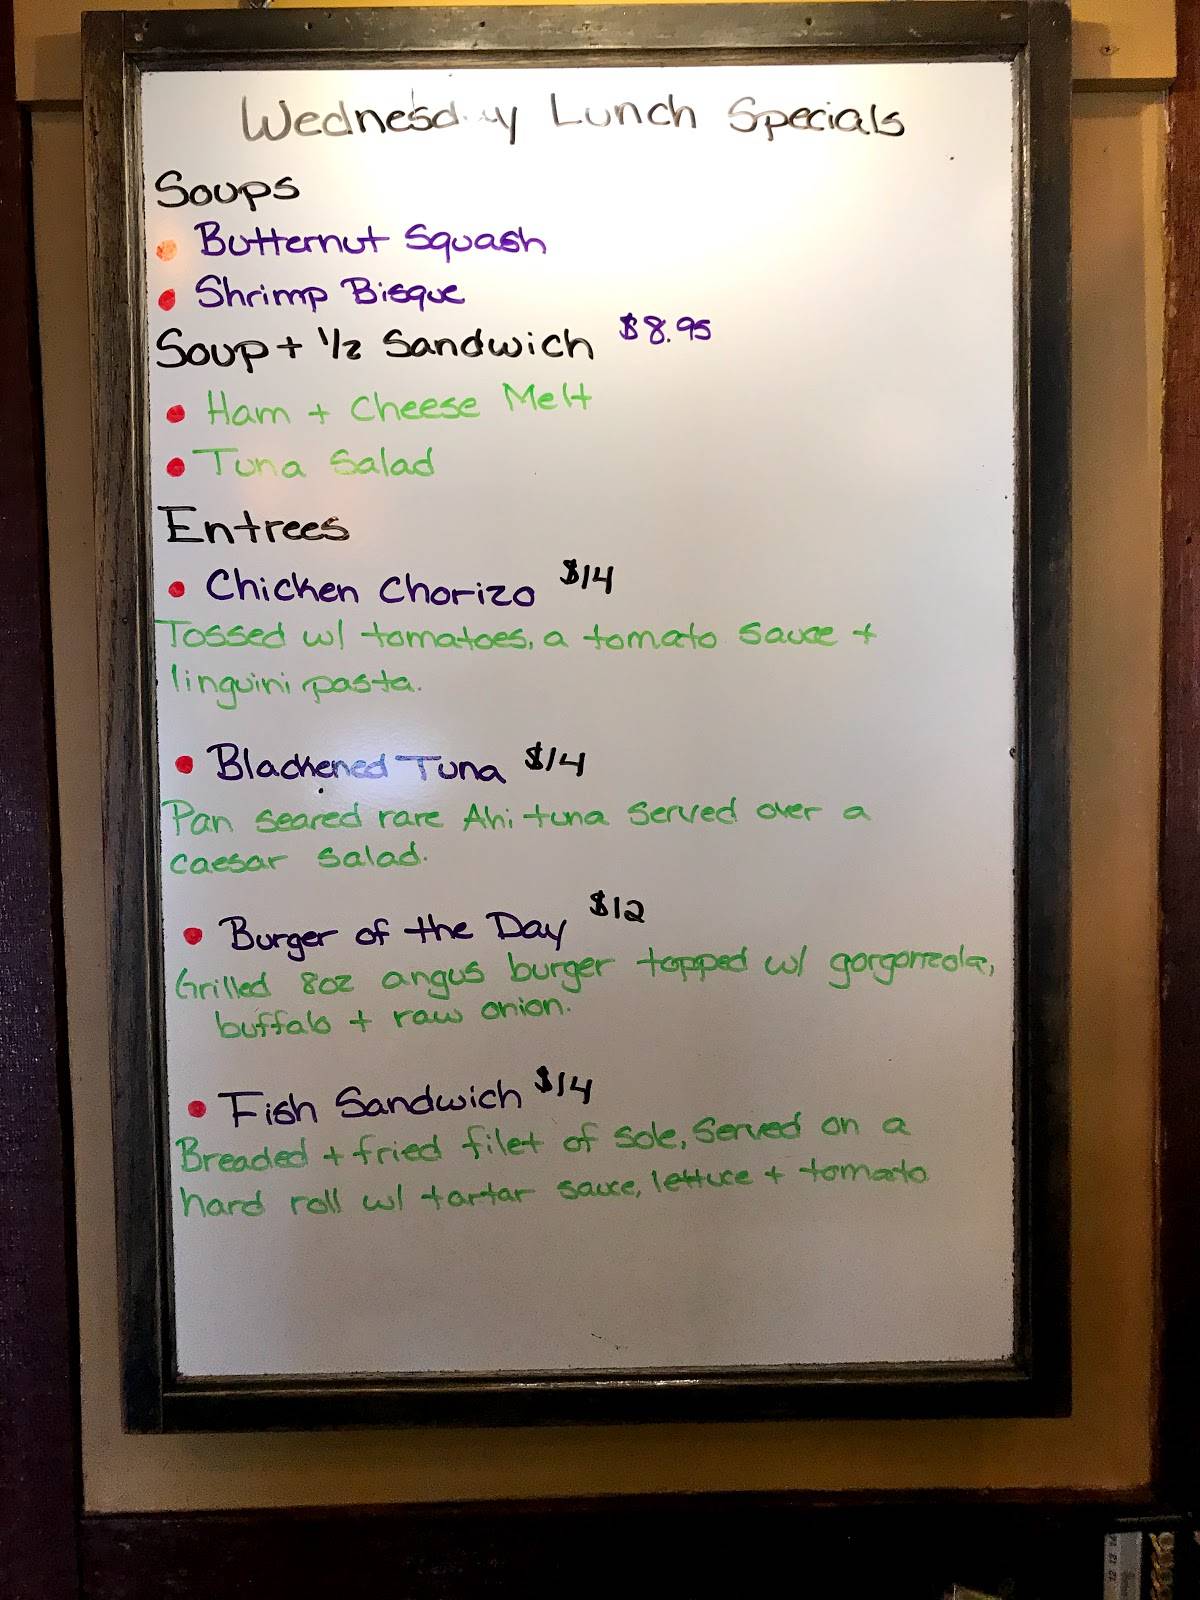 Wednesday Lunch Specials
Soups
Butternut Squash
Shrimp Bisque
Soup + 1/2 Sandwich $8.95
Ham + Cheese Melt
Tuna Salad
Entrees
Chicken Chorizo $14
Tossed w/ tomatoes, a tomato sauce +
linguini pasta.
Blackened Tuna $14
Pan seared rare Ahi tuna served over a
caesar salad.
Burger of the Day $12
Grilled 8oz angus burger topped w/ gorgonzola,
buffalo + raw onion.
Fish Sandwich $14
Breaded + fried filet of sole, served on a
hard roll w/ tartar sauce, lettuce + tomato